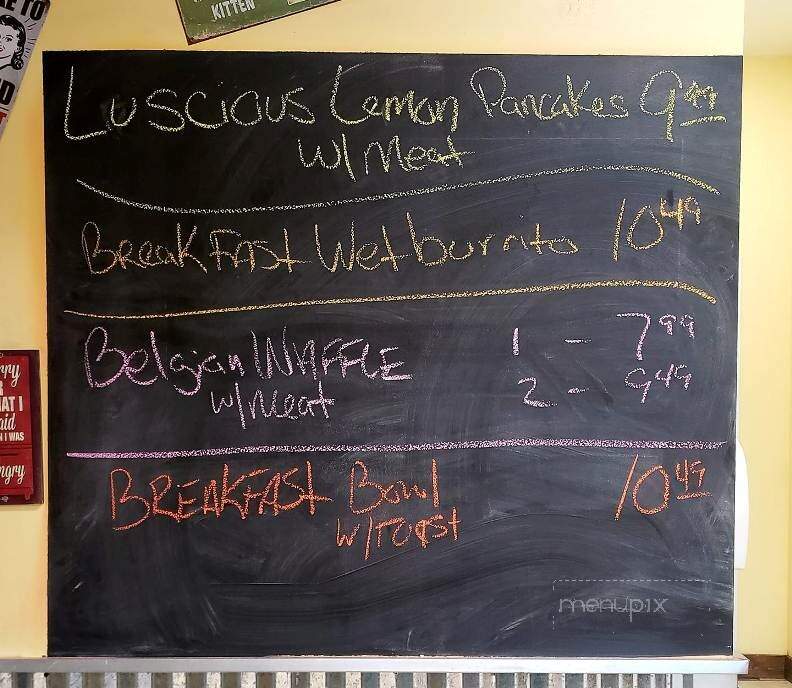 KITTEN
E TO
D
Luscious Lemon Pancakes 9.49
w/ Meat
BreakFAST Wet burrito 10.49
Belgian WAFFLE 1 - 7.99
w/ Meat 2 - 9.49
BREAKFAST Bowl 10.49
w/ TOAST
rry
R
HAT I
aid
N I WAS
ngry
menupix